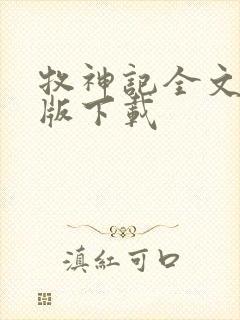 牧神記全文
版下載
滇紅可口